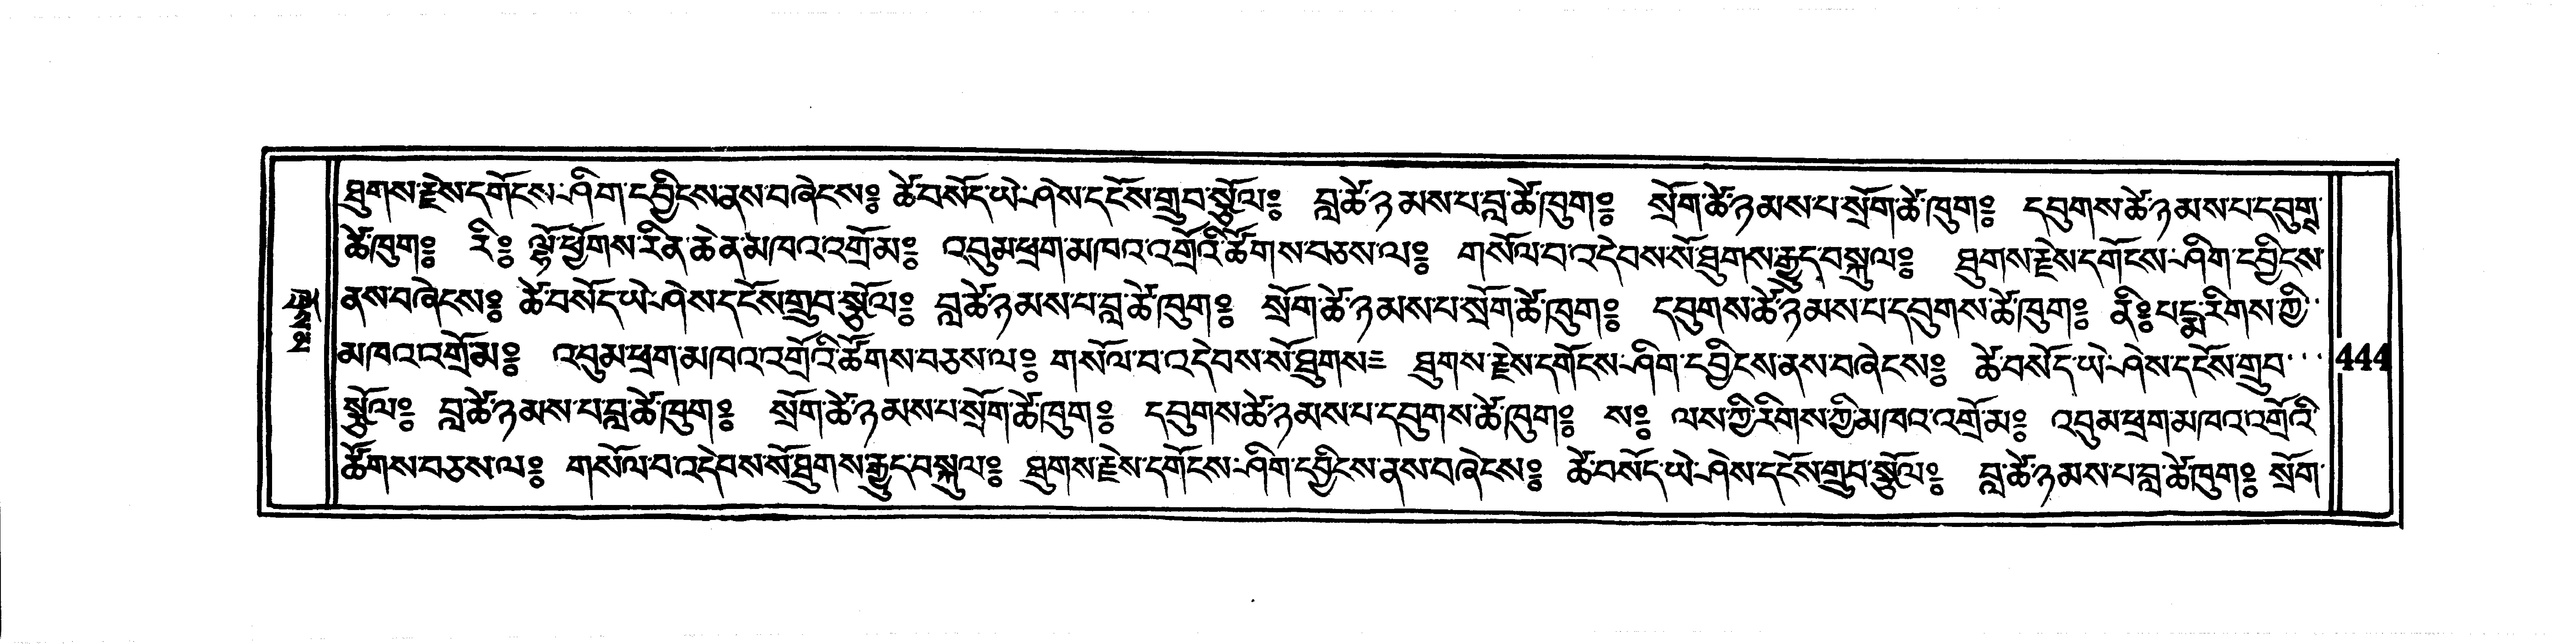 ཐུགས་རྗེས་དགོངས་ཤིག་དབྱིངས་ནས་བཞེངས༔ ཚེ་བསོད་ཡེ་ཤེས་དངོས་གྲུབ་སྩོལ༔ བླ་ཚེ་ཉམས་པ་བླ་ཚེ་ཁུག༔ སྲོག་ཚེ་ཉམས་པ་སྲོག་ཚེ་ཁུག༔ དབུགས་ཚེ་ཉམས་པ་དབུགས་
ཚེ་ཁུག༔ རི༔ ལྷོ་ཕྱོགས་རིན་ཆེན་མཁའ་འགྲོ་མ༔ འབུམ་ཕྲག་མཁའ་འགྲོའི་ཚོགས་བཅས་ལ༔ གསོལ་བ་འདེབས་སོ་ཐུགས་རྒྱུད་བསྐུལ༔ ཐུགས་རྗེས་དགོངས་ཤིག་དབྱིངས་
ནས་བཞེངས༔ ཚེ་བསོད་ཡེ་ཤེས་དངོས་གྲུབ་སྩོལ༔ བླ་ཚེ་ཉམས་པ་བླ་ཚེ་ཁུག༔ སྲོག་ཚེ་ཉམས་པ་སྲོག་ཚེ་ཁུག༔ དབུགས་ཚེ་ཉམས་པ་དབུགས་ཚེ་ཁུག༔ ནི༔ པདྨ་རིགས་ཀྱི་
མཁའ་འགྲོ་མ༔ འབུམ་ཕྲག་མཁའ་འགྲོའི་ཚོགས་བཅས་ལ༔ གསོལ་བ་འདེབས་སོ་ཐུགས༴ ཐུགས་རྗེས་དགོངས་ཤིག་དབྱིངས་ནས་བཞེངས༔ ཚེ་བསོད་ཡེ་ཤེས་དངོས་གྲུབ་
444
སྩོལ༔ བླ་ཚེ་ཉམས་པ་བླ་ཚེ་ཁུག༔ སྲོག་ཚེ་ཉམས་པ་སྲོག་ཚེ་ཁུག༔ དབུགས་ཚེ་ཉམས་པ་དབུགས་ཚེ་ཁུག༔ ས༔ ལས་ཀྱི་རིགས་ཀྱི་མཁའ་འགྲོ་མ༔ འབུམ་ཕྲག་མཁའ་འགྲོའི་
ཚོགས་བཅས་ལ༔ གསོལ་བ་འདེབས་སོ་ཐུགས་རྒྱུད་བསྐུལ༔ ཐུགས་རྗེས་དགོངས་ཤིག་དབྱིངས་ནས་བཞེངས༔ ཚེ་བསོད་ཡེ་ཤེས་དངོས་གྲུབ་སྩོལ༔ བླ་ཚེ་ཉམས་པ་བླ་ཚེ་ཁུག༔ སྲོག་